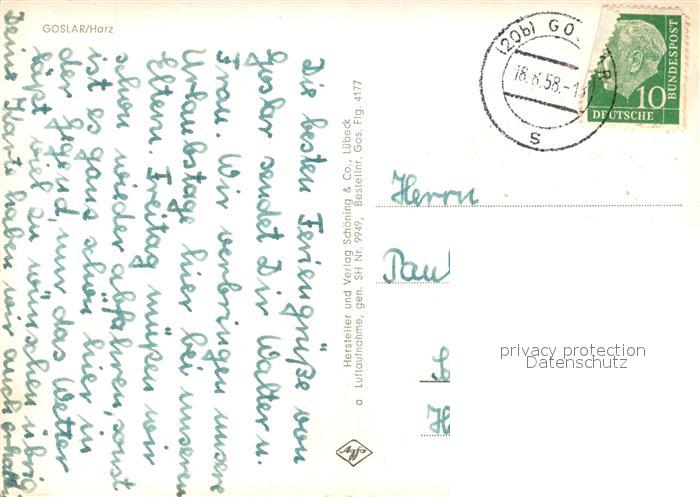 GOSLAR/Harz
Die besten Feriengrüße von
Goslar sendet Dir Walter u.
Frau. Wir verbringen unsere
Urlaubstage hier bei unseren
Eltern. Freitag müßen wir
schon wieder abfahren, sonst
ist es ganz schön hier in
der Gegend, nur das Wetter
läßt viel zu wünschen übrig
Deine Karte haben wir auch erhalt
Hersteller und Verlag Schöning & Co., Lübeck
a Luftaufnahme, gen. SH Nr. 9949, Bestellnr. Gos. Flg. 4177
Agfa
(20b) GO
R
18.8.58.-1
S
10
DEUTSCHE
BUNDESPOST
Herrn
Paul
privacy protection
Datenschutz